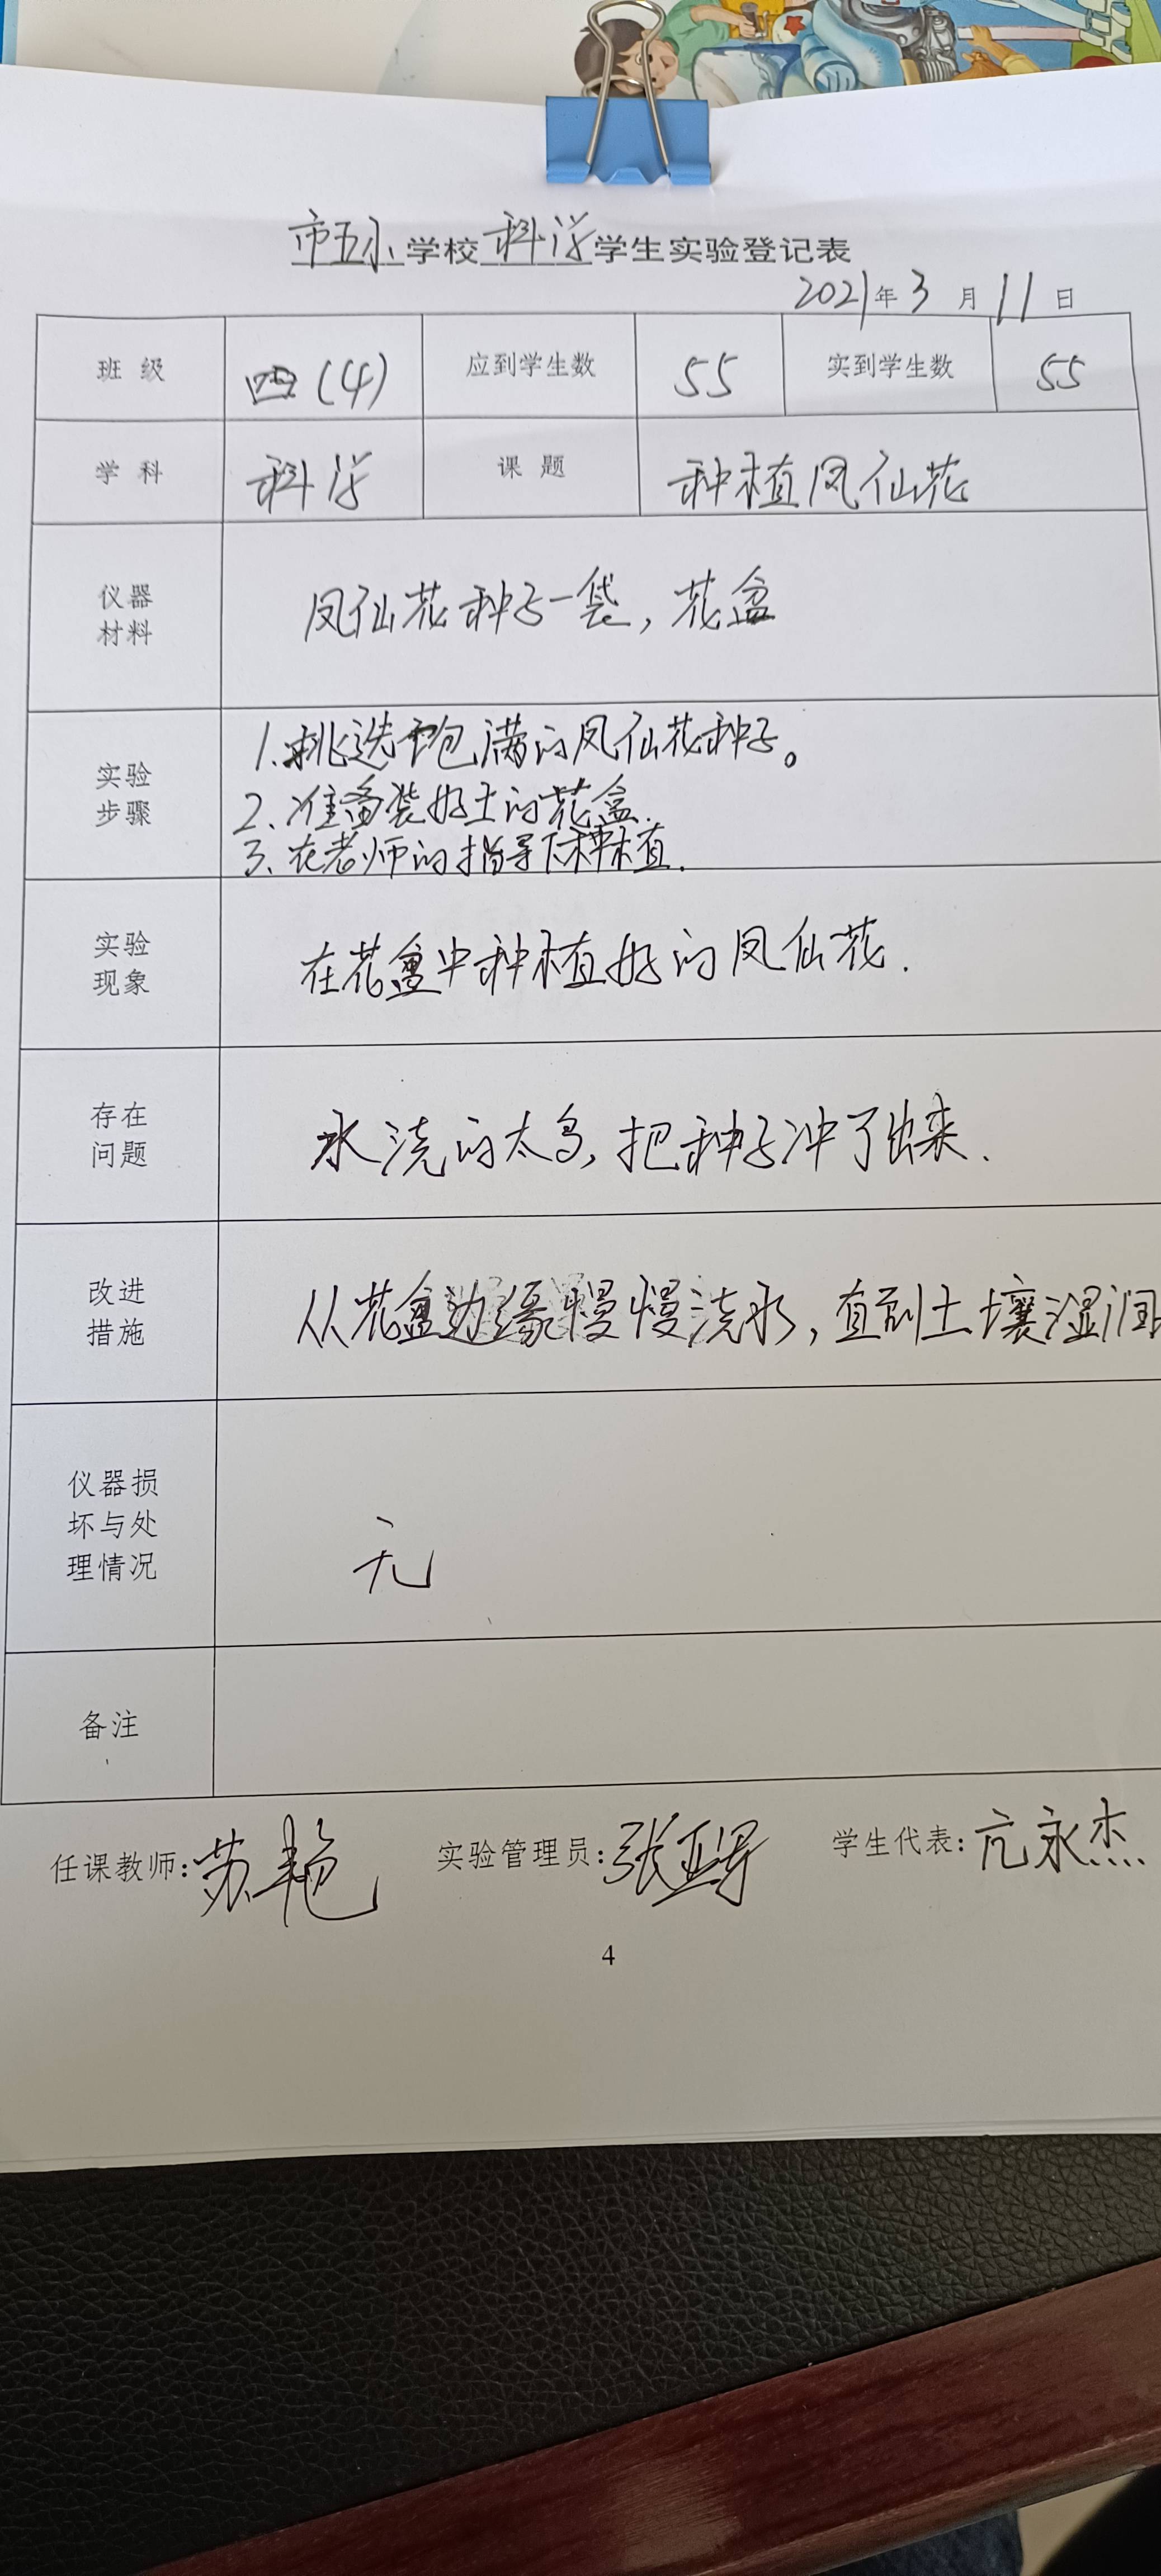 市五小学校科学学生实验登记表
2021年3月11日
班级 四(4) 应到学生数 55 实到学生数 55
学科 科学 课题 种植凤仙花
仪器
材料
凤仙花种子一袋,花盆
实验
步骤
1.挑选饱满的凤仙花种子。
2、准备装好土的花盆.
3、在老师的指导下种植.
实验
现象
在花盆中种植好的凤仙花.
存在
问题
水浇的太多,把种子冲了出来.
改进
措施
从花盆边缘慢慢浇水,直到土壤湿润
仪器损
坏与处
理情况
无
备注
任课教师:苏艳 实验管理员:张亚 学生代表:亢永杰
4